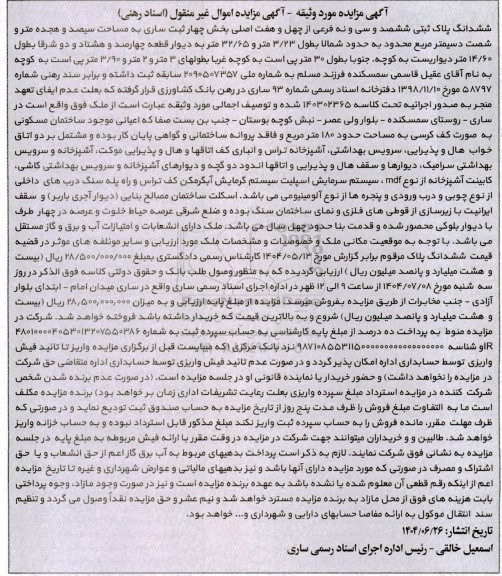 آگهی مزایده مورد وثیقه - آگهی مزایده اموال غیر منقول (اسناد رهنی)
ششدانگ پلاک ثبتی ششصد و سی و نه فرعی از چهل و هفت اصلی بخش چهار ثبت ساری به مساحت سیصد و هجده متر و
شصت دسیمتر مربع محدود به حدود شمالا بطول ۳/۲۳ متر و ۳۲/۶۵ متر به دیوار قطعه چهارصد و هشتاد و دو شرقا بطول
۱۴/۶۰ متر دیواریست به کوچه، جنوبا بطول ۳۰ متر پی است به کوچه غربا بطولهای ۳ متر و ۲ متر و ۳/۹۰ متر پی است به کوچه
به نام آقای عقیل قاسمی سمسکنده فرزند مسلم به شماره ملی ۲۰۹۰۵۰۷۳۵۷ سابقه ثبت داشته و برابر سند رهنی شماره
۵۸۷۹۷ مورخ ۱۳۹۸/۱۱/۱۰ دفترخانه اسناد رسمی شماره ۹۳ ساری در رهن بانک کشاورزی قرار گرفته که بعلت عدم ایفای تعهد
منجر به صدور اجرائیه تحت کلاسه ۱۴۰۳۰۲۳۶۵ شده و توصیف اجمالی مورد وثیقه عبارت است از ملک فوق واقع است در
ساری - روستای سمسکنده - بلوار ولی عصر - نبش کوچه بوستان - جنب بن بست صفا که اعیانی موجود ساختمان مسکونی
به صورت کف کرسی به مساحت حدود ۱۸۰ متر مربع و فاقد پروانه ساختمانی و گواهی پایان کار بوده و مشتمل بر دو اتاق
خواب هال و پذیرایی، سرویس بهداشتی، آشپزخانه تراس و انباری کف اتاقها و هال و پذیرایی موکت، آشپزخانه و سرویس
بهداشتی سرامیک، دیوارها و سقف هال و پذیرایی و اتاقها اندود دو گچه و دیوارهای آشپزخانه و سرویس بهداشتی کاشی،
کابینت آشپزخانه از نوع mdf ، سیستم سرمایش اسپلیت سیستم گرمایش آبگرمکن کف تراس و راه پله سنگ درب های داخلی
از نوع چوبی و درب ورودی و پنجره ها از نوع آلومینیومی می باشد. اسکلت ساختمان مصالح بنایی (دیوار آجری باربر) و سقف
ایرانیت با زیرسازی از قوطی های فلزی و نمای ساختمان سنگ بوده و ضلع شرقی عرصه حیاط خلوت و عرصه در چهار طرف
با دیوار بلوکی محصور شده و قدمت بنا حدود چهل سال می باشد. ملک دارای انشعابات و امتیازات آب و برق و گاز مستقل
می باشد. با توجه به موقعیت مکانی ملک و خصوصیات و مشخصات ملک مورد ارزیابی و سایر مولفه های موثر در قضیه
قیمت ششدانگ پلاک مرقوم برابر گزارش مورخ ۱۴۰۴/۰۵/۱۳ کارشناس رسمی دادگستری بمبلغ ۲۸/۵۰۰/۰۰۰/۰۰۰ ریال (بیست
و هشت میلیارد و پانصد میلیون ریال ) ارزیابی گردیده که به منظور وصول طلب بانک و حقوق دولتی کلاسه فوق الذکر در روز
سه شنبه مورخ ۱۴۰۴/۰۷/۰۸ از ساعت ۹ الی ۱۲ ظهر در اداره اجرای اسناد رسمی ساری واقع در ساری میدان امام - ابتدای بلوار
آزادی - جنب مخابرات از طریق مزایده بفروش میرسد. مزایده از مبلغ پایه ارزیابی و به میزان ۲۸,۵۰۰,۰۰۰,۰۰۰ ریال (بیست
و هشت میلیارد و پانصد میلیون ریال) شروع و به بالاترین قیمت که خریدار داشته باشد فروخته خواهد شد. شرکت در
مزایده منوط به پرداخت ده درصد از مبلغ پایه کارشناسی به حساب سپرده ثبت به شماره
IR و شناسه نزد بانک مرکزی (که میبایست قبل از برگزاری مزایده واریز تا تائید فیش
واریزی توسط حسابداری اداره امکان پذیر گردد و در صورت عدم تائید فیش واریزی توسط حسابداری اداره متقاضی حق شرکت
در مزایده را نخواهد داشت) و حضور خریدار یا نماینده قانونی او در جلسه مزایده است. (در صورت عدم برنده شدن شخص
شرکت کننده در مزایده استرداد مبلغ سپرده واریزی بعلت رعایت تشریفات اداری زمان بر خواهد بود) برنده مزایده مکلف
است ما به التفاوت مبلغ فروش را ظرف مدت پنج روز از تاریخ مزایده به حساب صندوق ثبت تودیع نماید و در صورتی که
ظرف مهلت مقرر، مانده فروش را به حساب سپرده ثبت واریز نکند مبلغ مذکور قابل استرداد نبوده و به حساب خزانه واریز
خواهد شد. طالبین و و خریداران میتوانند جهت شرکت در مزایده در وقت مقرر با ارائه فیش مربوطه به مبلغ پایه در جلسه
مزایده به نشانی فوق شرکت نمایند. لازم به ذکر است پرداخت بدهیهای مربوط به آب برق گاز اعم از حق انشعاب و یا حق
اشتراک و مصرف در صورتی که مورد مزایده دارای آنها باشد و نیز بدهیهای مالیاتی و عوارض شهرداری و غیره تا تاریخ مزایده
اعم از اینکه رقم قطعی آن معلوم شده یا نشده باشد به عهده برنده مزایده است و نیز در صورت وجود مازاد، وجوه پرداختی
بابت هزینه های فوق از محل مازاد به برنده مزایده مسترد خواهد شد و نیم عشر و حق مزایده نقداً وصول می گردد و تنظیم
سند انتقال موکول به ارائه مفاصا حسابهای دارایی و شهرداری و... خواهد بود.
تاریخ انتشار: ۱۴۰۴/۰۶/۲۶
اسمعیل خالقی - رئیس اداره اجرای اسناد رسمی ساری